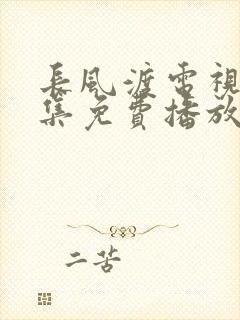 長風渡電視
集免費播放
二苦